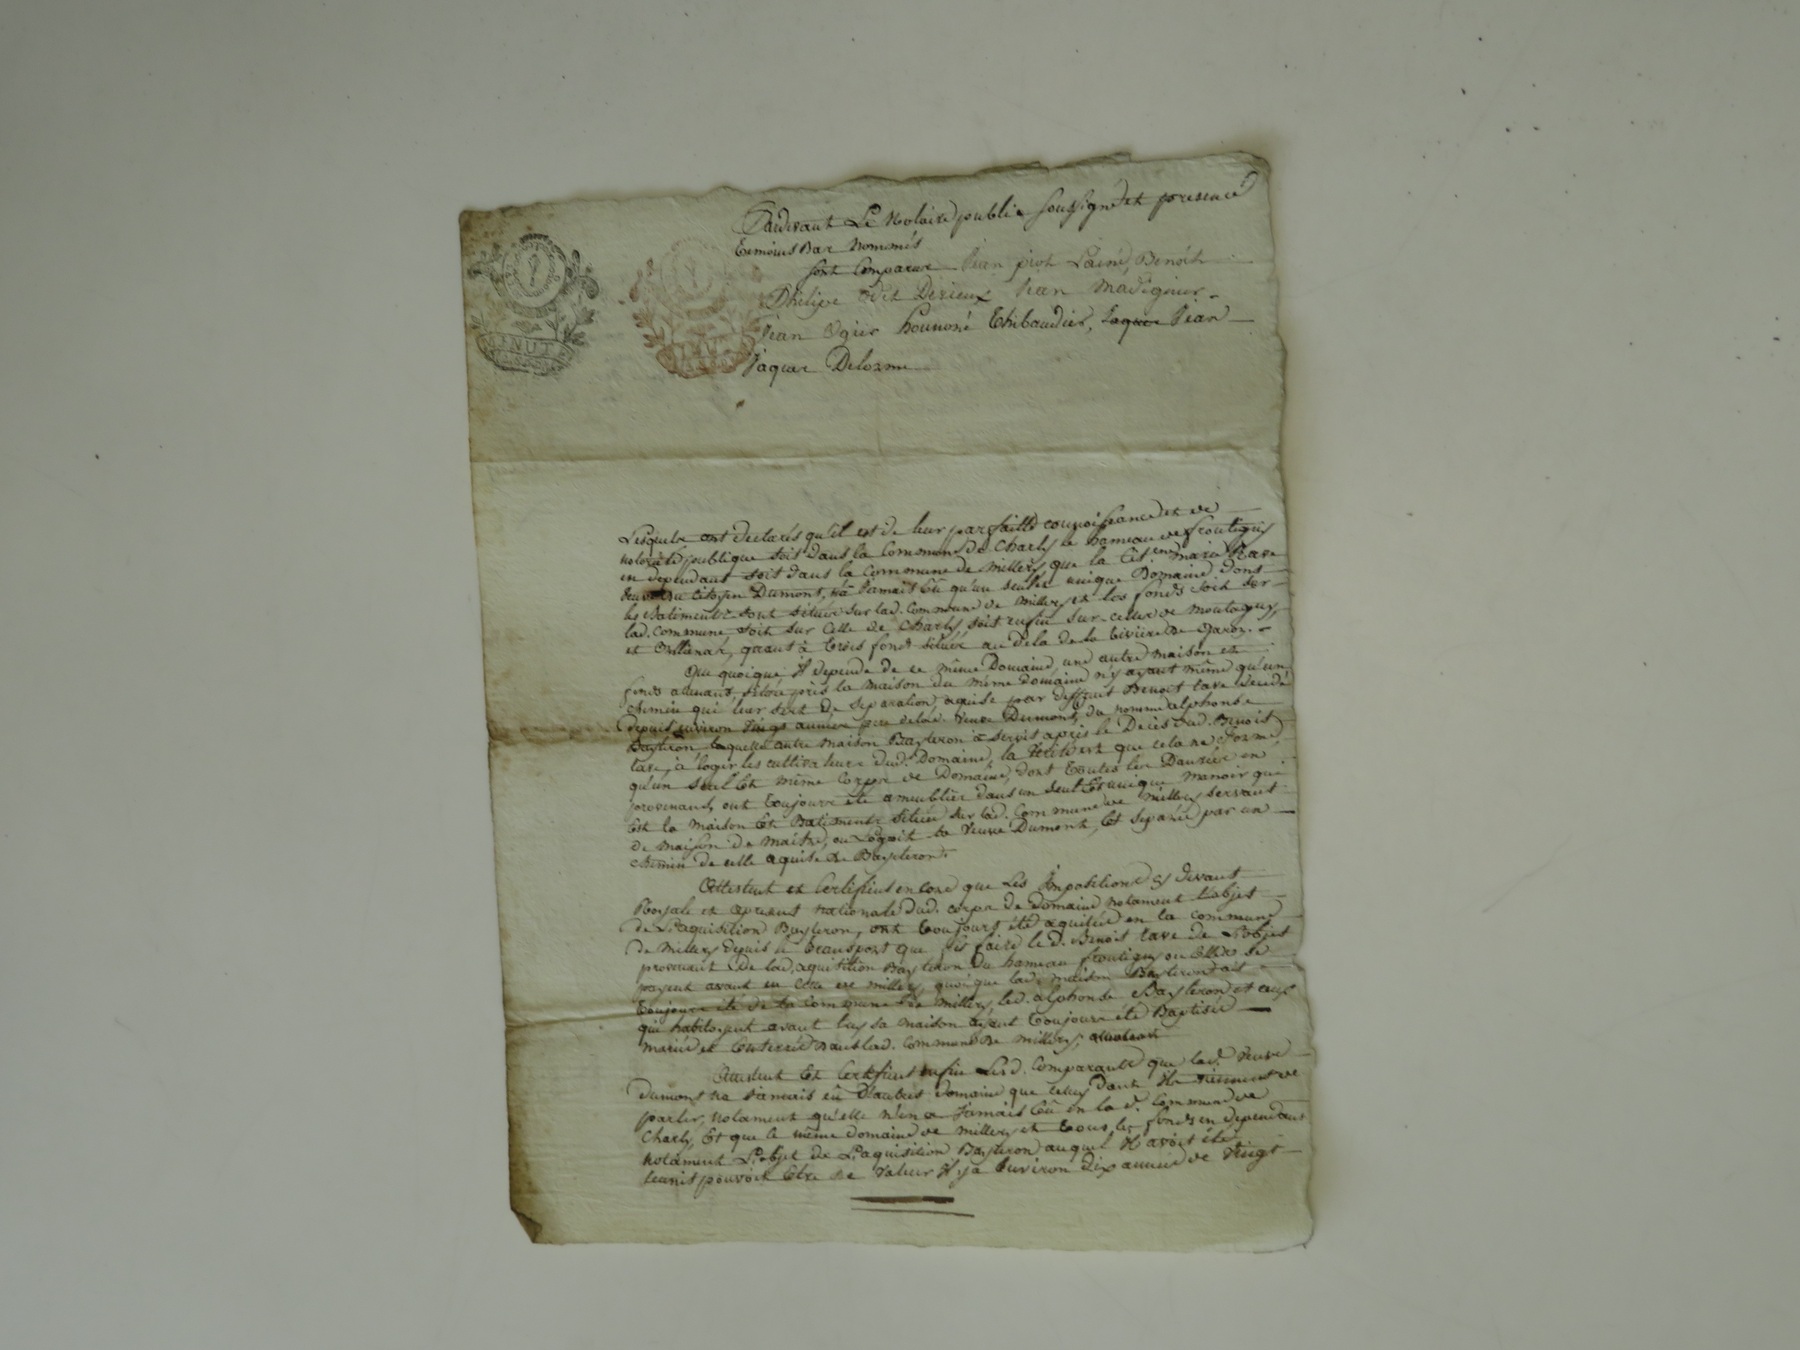 MINUT
Pardevant Le Notaire public soussigné et presence
temoins Bas Nommés
sont comparus Jean piot Lainé, Benoit
Phelipe dit Derieux Jean Madignier
Jean Ogier honnoré Thibaudier, Jaques Jean
Jaques Delorme
Lesquels ont declarés qu'il est de leur parfaitte connoissance et de
notorieté publique soit dans la Commune de Charly le hameau de froutigny
en dependant soit dans la Commune de Millery que la Cit.enne marie Tave
veuve du citoyen Dumont, n'a Jamais Eû qu'un seul et unique Domaine dont
les Batiments sont situés sur lad. Commune de Millery et les fonds soit sur
lad. Commune soit sur Celle de Charly soit enfin sur celles de montagny
et Orliénas, quant à trois fonds situés au dela de la riviere de Garon.
Que quoique Il depende de ce même Domaine, une autre maison et
fonds attenant, située près la maison du même domaine n'y ayant même qu'un
chemin qui leur sert de separation, aquise par deffunt Benoit tave decedé
depuis environ vingt années pere de lad. veuve Dumont, du nommé alphonse
Bayleron, laquelle autre maison Bayleron a servis après le Decès dud. Benoit
tave, à loger les cultivateurs dud. Domaine, la verité est que cela ne forme
qu'un seul Et même Corps de Domaine dont toutes les Danrées en
provenant, ont toujours été ameublies dans un seul Et unique manoir qui
Est la maison Et Batiments situés sur lad. Commune de Millery servant
de maison de maitre, ou Logoit la veuve Dumont, Et separée par un
chemin de celle aquise de Bayleron.
Attestent et Certifient encore que Les Impositions cy devant
Royale et apresent nationale dud. corps de domaine notament L'objet
de L'aquisition Bayleron, ont toujours été aquitées en la commune
de Millery depuis le transport que fit faire led. Benoit tave de L'objet
provenant de lad. aquisition Bayleron du hameau froutigny ou Elles se
payent avant en celle de Millery, quoique lad. maison Bayleron ait
toujours été de la commune de Millery, led. alphonse Bayleron et ceux
qui habitoyent avant luy sa maison ayant toujours été Baptisés
mariés et Enterrés dans lad. commune de Millery,
Attestent Et Certifient enfin Lesd. Comparants que lad. veuve
Dumont n'a Jamais eû d'autres domaine que celuy dont Ils viennent de
parler, notament qu'elle n'en a Jamais Eû en la d. Commune de
Charly, Et que le même domaine de Millery et tous les fonds en dependants
notament L'objet de L'aquisition Bayleron auquel Il avoit été
reunis pouvoit Etre de valeur Il y a Environ dix années de vingt